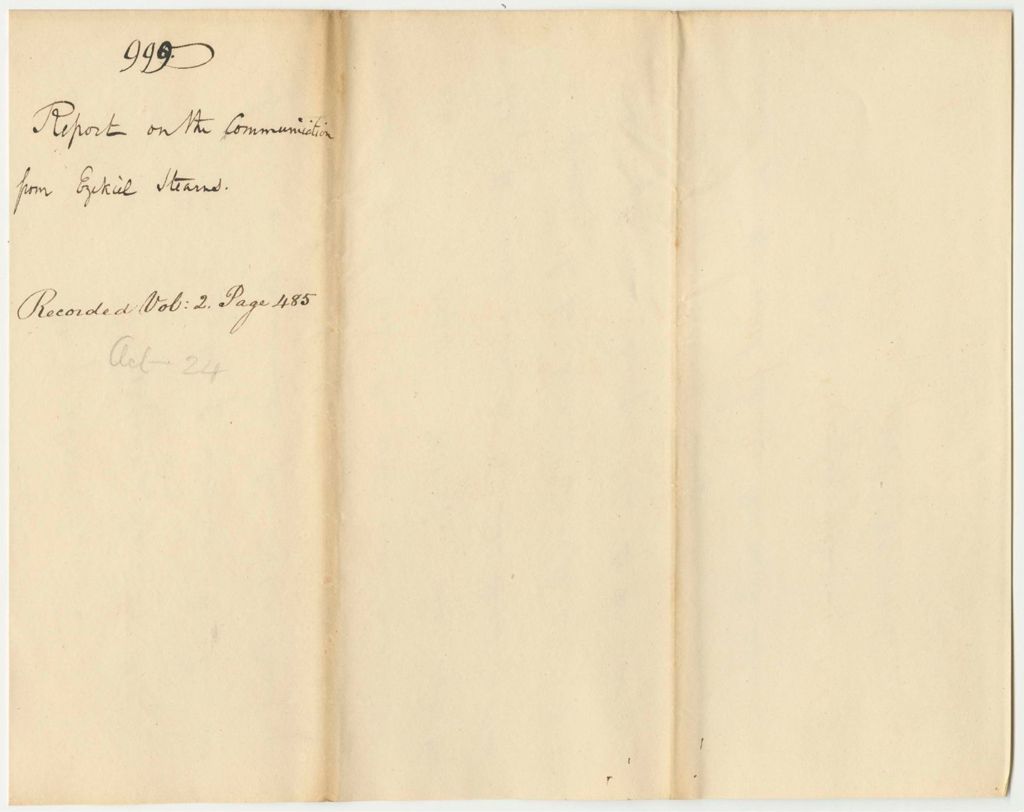 Report on the Communication
from Ezekiel Stearns.
Recorded Vol: 2. Page 485
24